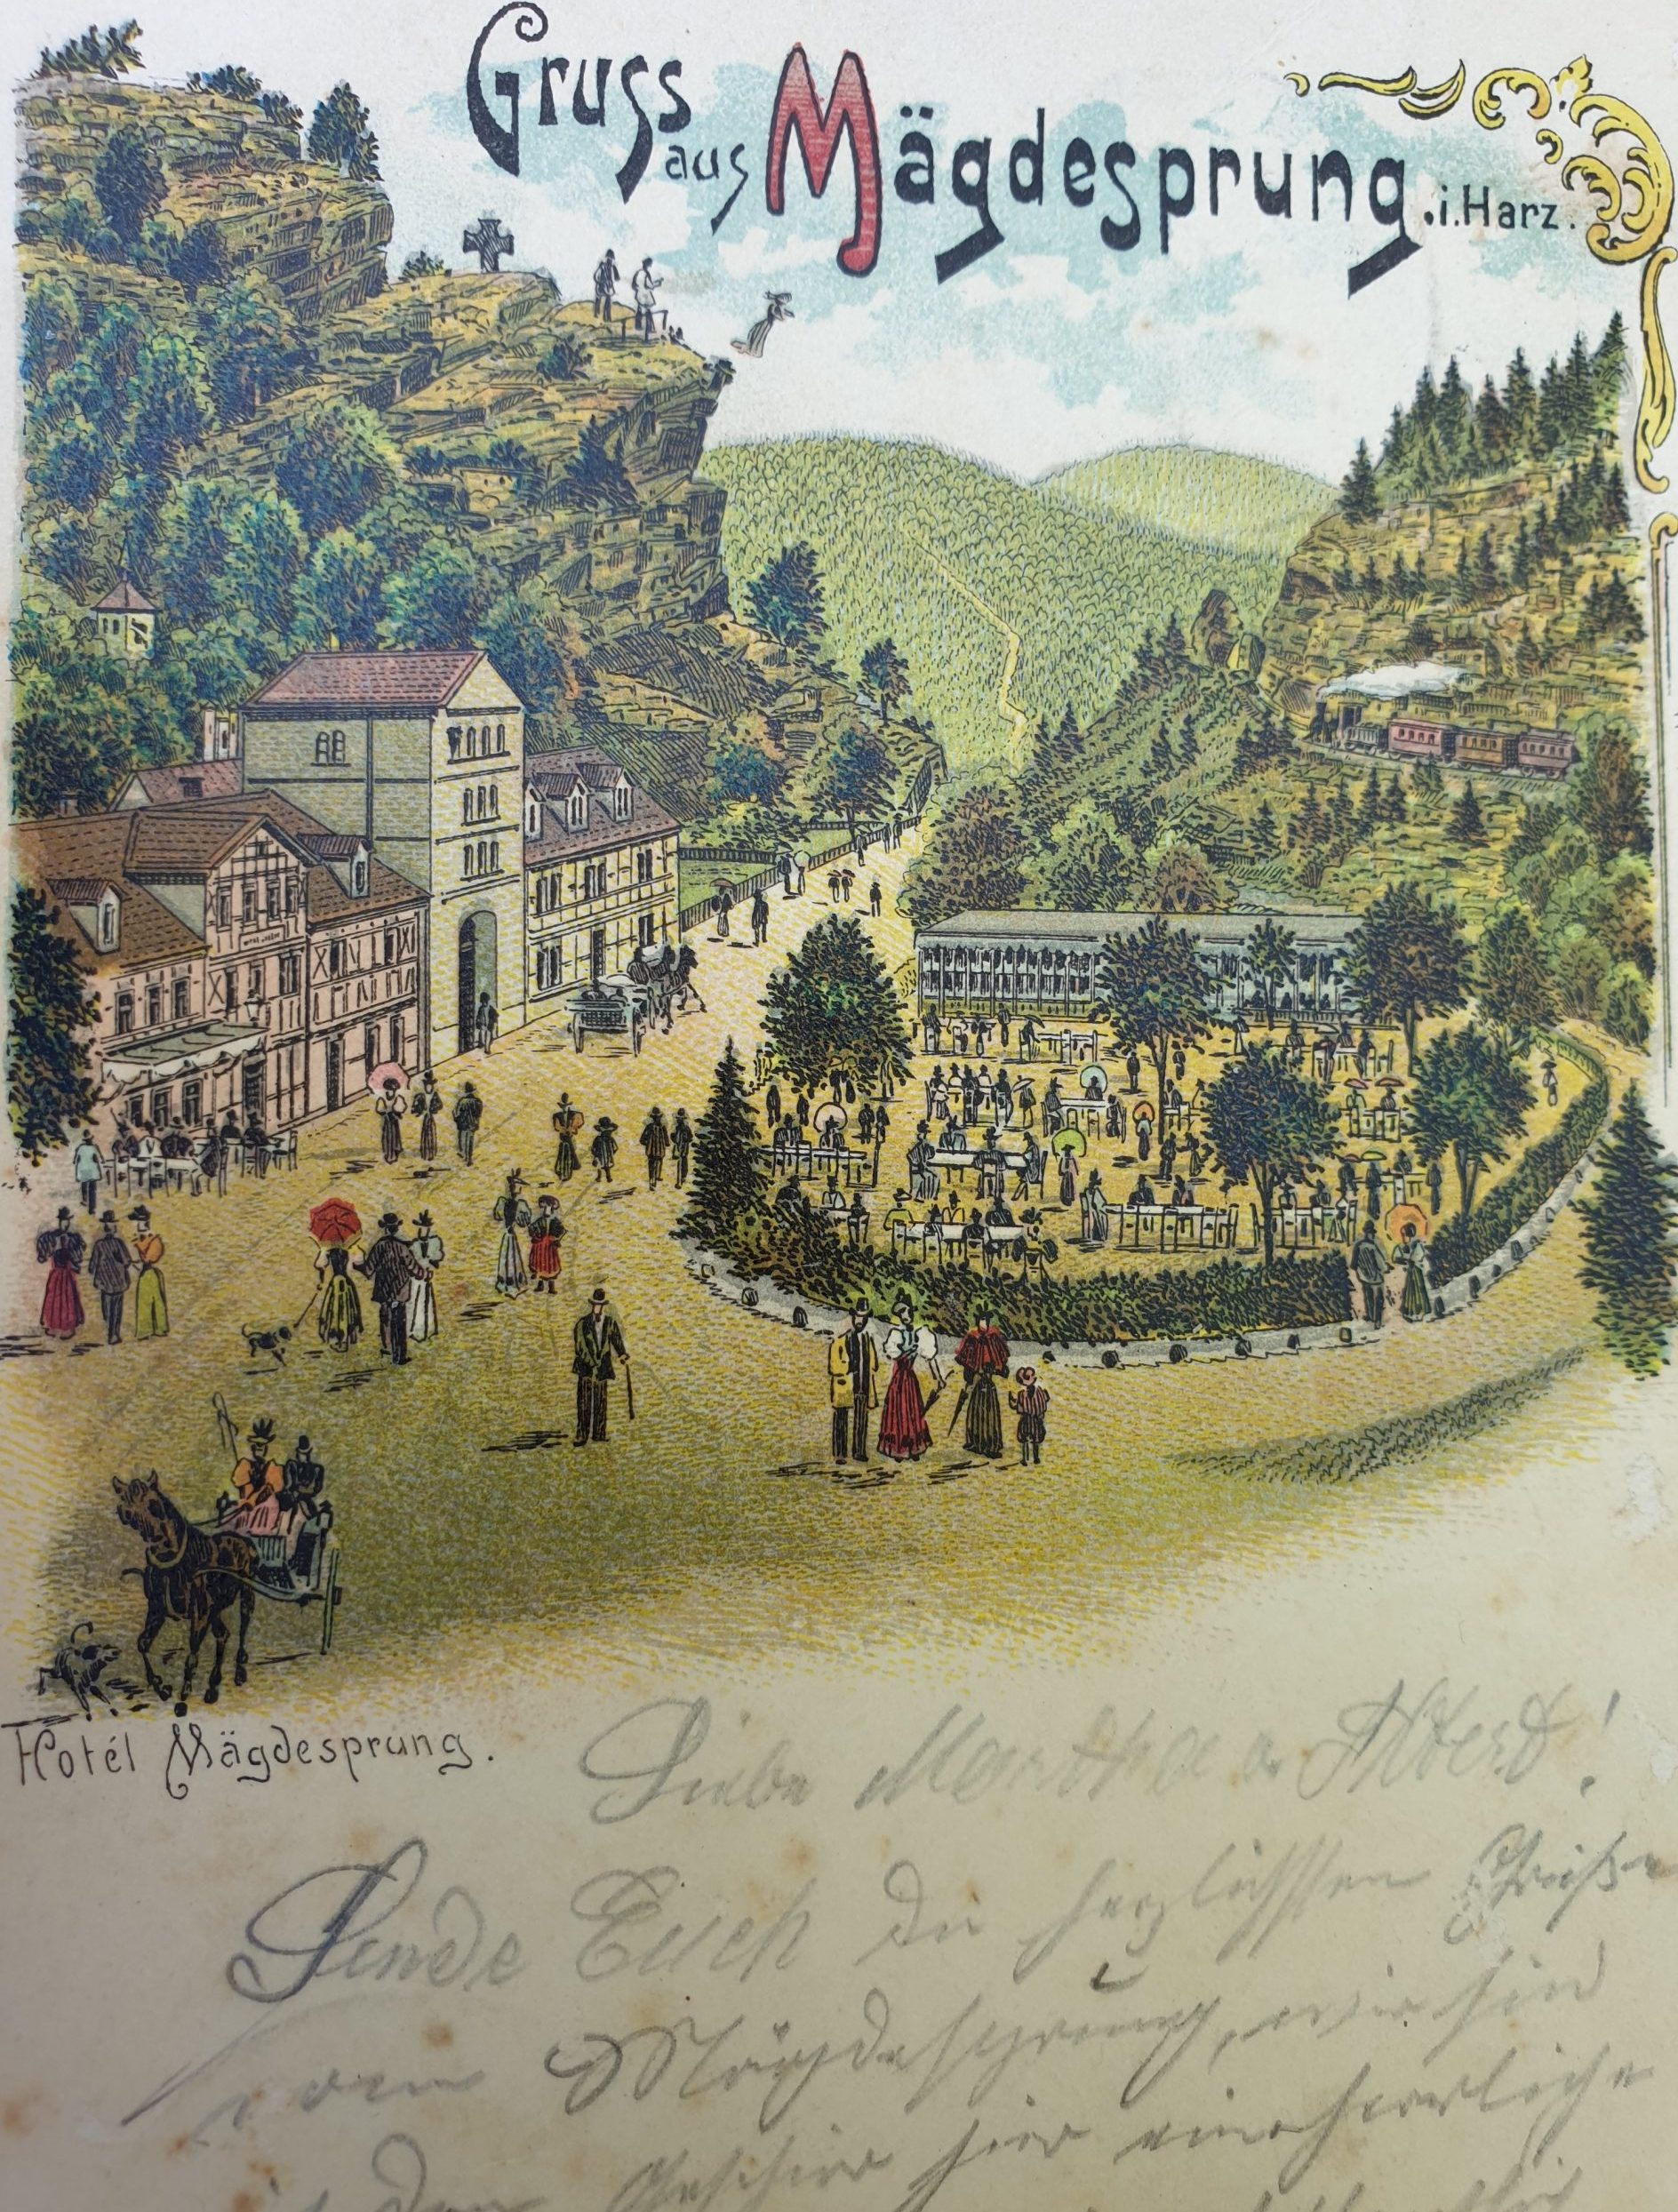 Gruss
aus Mägdesprung. i. Harz.
Hotél Mägdesprung.
Liebe Martha u. Albert!
Sende Euch die herzlichsten Grüße
vom Mägdesprung, wir sind
hier eine herrliche